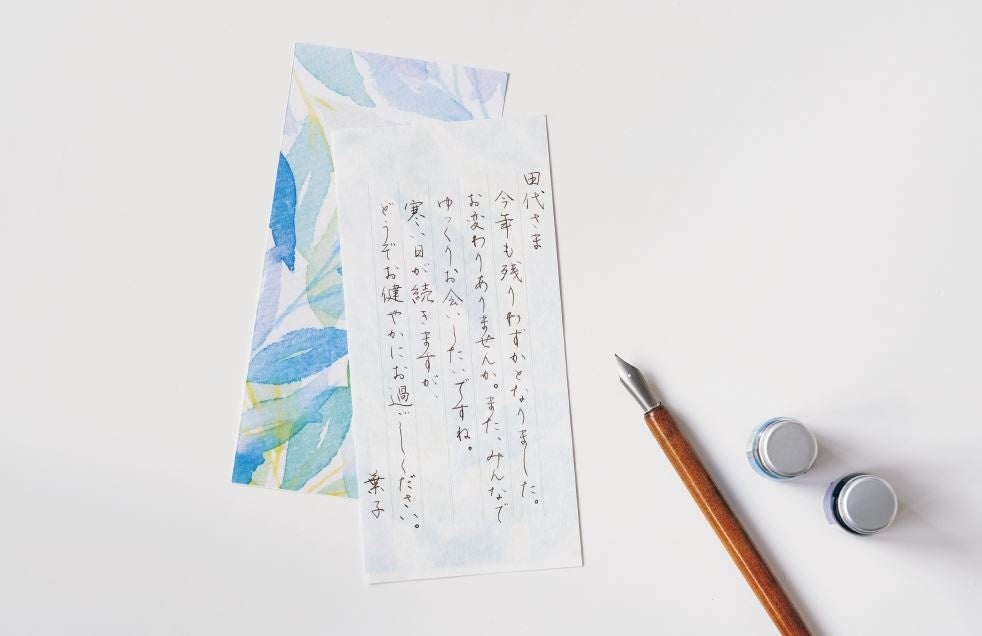 田代さま
今年も残りわずかとなりました。
お変わりありませんか。また、みんなで
ゆっくりお会いしたいですね。
寒い日が続きますが、
どうぞお健やかにお過ごしください。
葉子